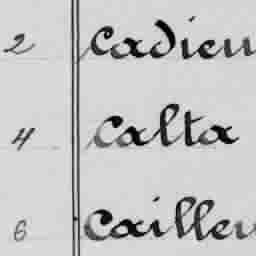 2 Cadieu
4 Calta
6 Cailleu